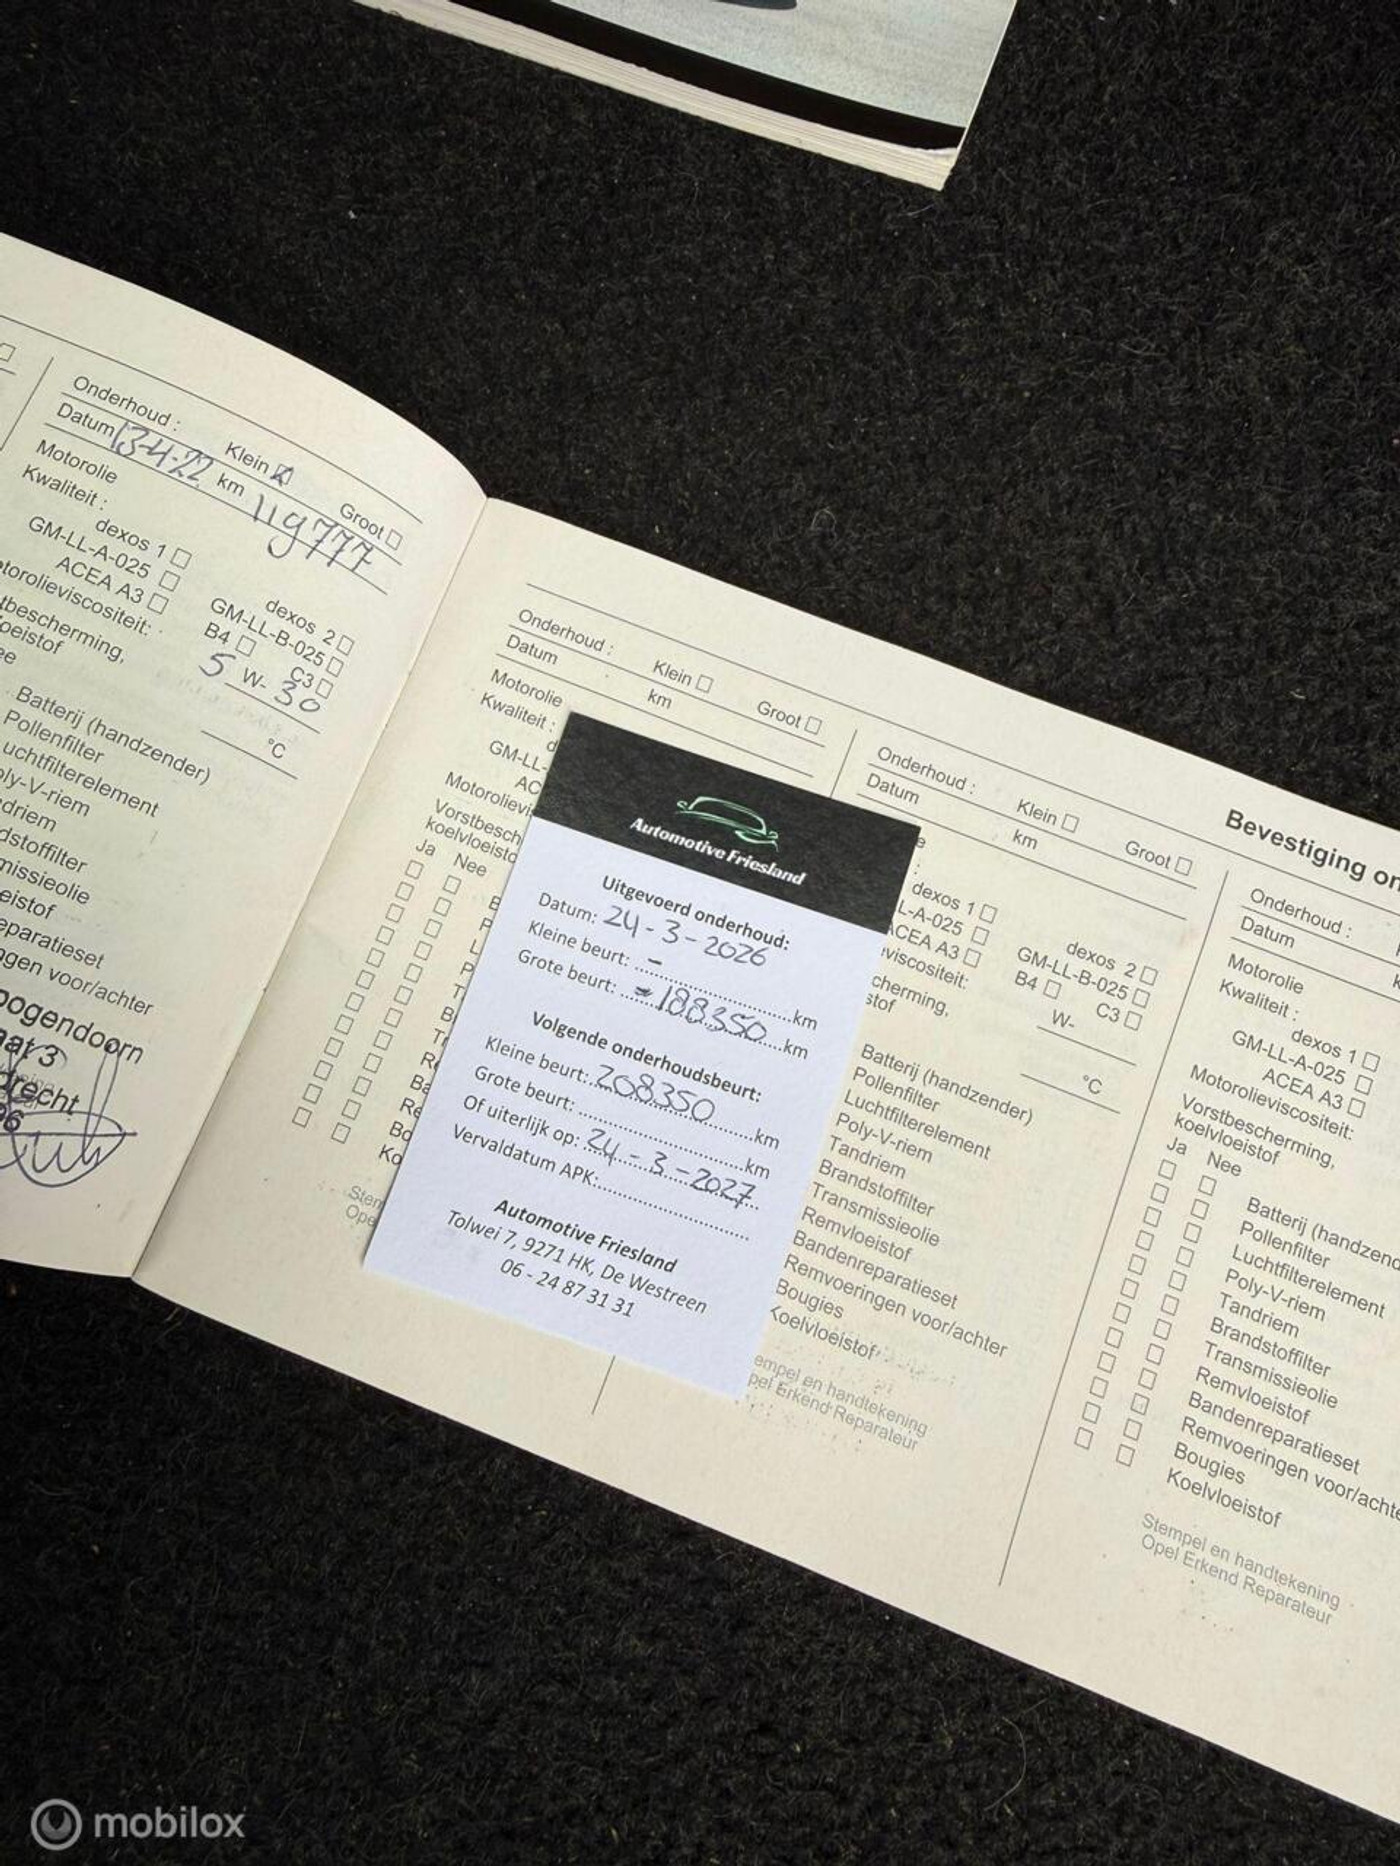 Onderhoud : Klein Groot
Datum 13-4-22 km 119777
Motorolie
Kwaliteit :
dexos 1 dexos 2
GM-LL-A-025 GM-LL-B-025
ACEA A3 B4 C3
torolieviscositeit: 5 W- 30
tbescherming,
oeistof °C
ee
Batterij (handzender)
Pollenfilter
uchtfilterelement
oly-V-riem
driem
dstoffilter
missieolie
eistof
eparatieset
ogen voor/achter
oogendoorn
aat 3
drecht
Onderhoud : Klein Groot
Datum km
Motorolie
Kwaliteit :
GM-LL-
AC
Motorolievi
Vorstbesch
koelvloeisto
Ja Nee
Automotive Friesland
Uitgevoerd onderhoud:
Datum: 24-3-2026
Kleine beurt: - km
Grote beurt: 188350 km
Volgende onderhoudsbeurt:
Kleine beurt: 208350 km
Grote beurt: km
Of uiterlijk op: 24-3-2027
Vervaldatum APK:
Automotive Friesland
Tolwei 7, 9271 HK, De Westreen
06 - 24 87 31 31
Onderhoud : Klein Groot
Datum km
dexos 1 dexos 2
L-A-025 GM-LL-B-025
ACEA A3 B4 C3
viscositeit: W-
cherming,
stof °C
Batterij (handzender)
Pollenfilter
Luchtfilterelement
Poly-V-riem
Tandriem
Brandstoffilter
Transmissieolie
Remvloeistof
Bandenreparatieset
Remvoeringen voor/achter
Bougies
Koelvloeistof
empel en handtekening
pel Erkend Reparateur
Bevestiging on
Onderhoud :
Datum
Motorolie
Kwaliteit :
dexos 1
GM-LL-A-025
ACEA A3
Motorolieviscositeit:
Vorstbescherming,
koelvloeistof
Ja Nee
Batterij (handzend
Pollenfilter
Luchtfilterelement
Poly-V-riem
Tandriem
Brandstoffilter
Transmissieolie
Remvloeistof
Bandenreparatieset
Remvoeringen voor/achte
Bougies
Koelvloeistof
Stempel en handtekening
Opel Erkend Reparateur
mobilox